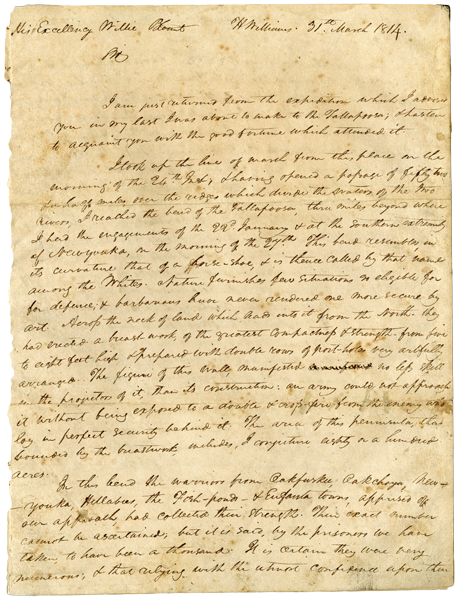 His Excellency Willie Blount Ft Williams 31st March 1814.
Sir
I am just returned from the expedition which I advised
you in my last I was about to make to the Tallapoosa; & hasten
to acquaint you with the good fortune which attended it
I took up the line of march from this place on the
morning of the 24th Inst; & having opened a passage of fifty two
& a half miles over the ridges which divide the waters of the two
rivers, I reached the bend of the Tallapoosa, three miles beyond where
I had the engagement of the 22d January & at the Southern extremity
of Newyouka, on the morning of the 27th This bend resembles in
its curvature that of a horse-shoe, & is thence called by that name
among the Whites. Nature furnishes few situations so eligible for
for defence; & barbarians have never rendered one more secure by
art. Across the neck of land which leads into it from the North, they
had erected a breast work, of the greatest compactness & strength from five
to eight feet high & prepared with double rows of port-holes very artfully
arranged. The figure of this wall, manifested no less skill
in the projectors of it, than its construction: an army could not approach
it without being exposed to a double & cross-fire from the enemy who
lay in perfect security behind it. The area of this peninsula, thus
bounded by the breastwork includes, I conjecture eighty or a hundred
acres.
In this bend the warriors from Oakfuskee, Oakchoga, New-
youka, Hillabees, the Fish-ponds & Eufaula towns, apprised of
our approach, had collected their strength. Their exact number
cannot be ascertained; but it is said, by the prisoners we have
taken, to have been a thousand. It is certain they were very
numerous; & that relying with the utmost confidence upon their